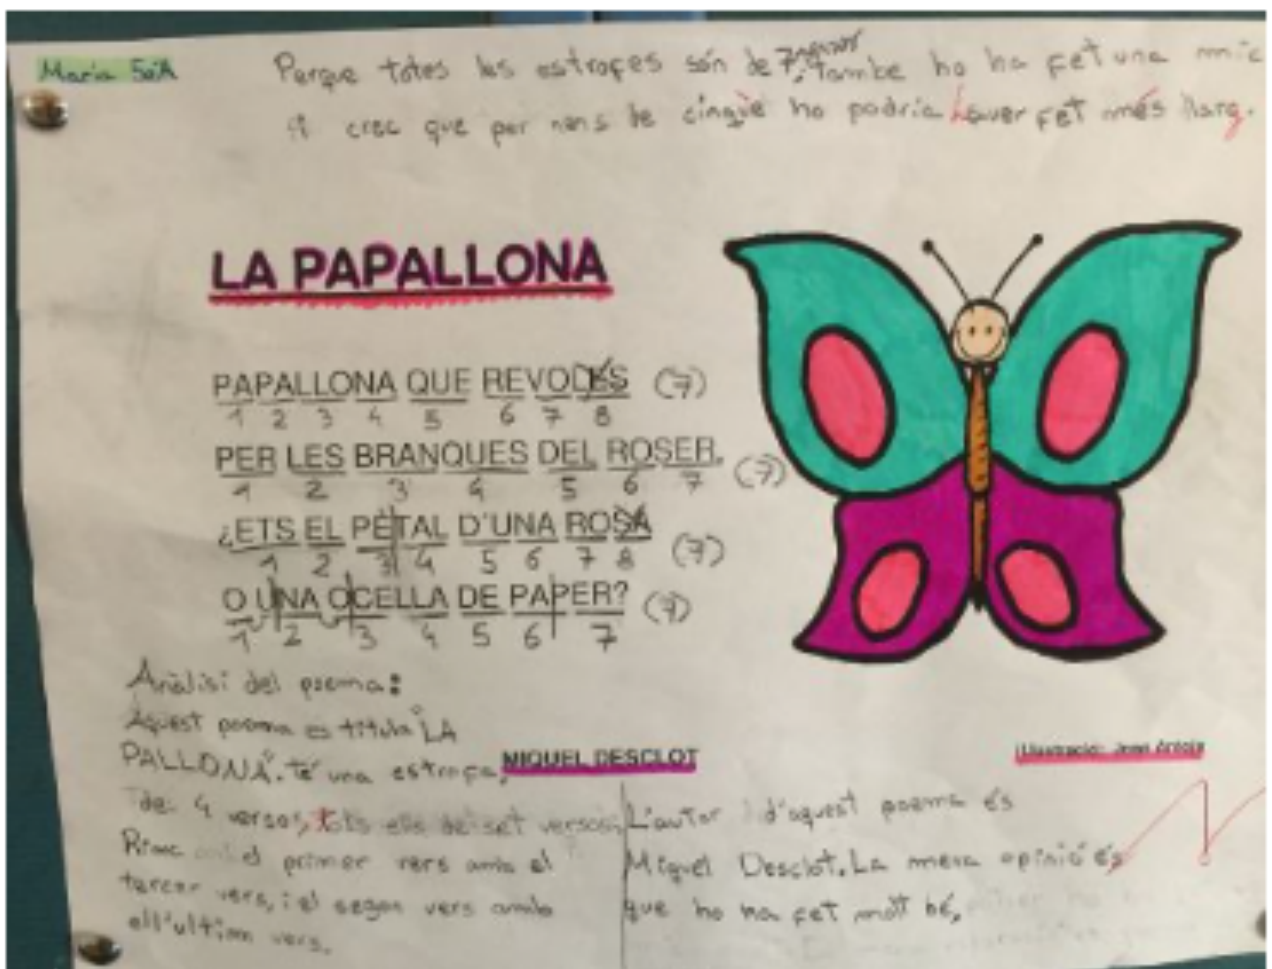 Maria 5èA
Perque totes les estrofes són de 7, Tambe ho ha fet una mic
crec que per nens de cinquè ho podria haver fet més llarg.
LA PAPALLONA
PAPALLONA QUE REVOLES (7)
1 2 3 4 5 6 7 8
PER LES BRANQUES DEL ROSER. (7)
1 2 3 4 5 6 7
¿ETS EL PÈTAL D'UNA ROSA (7)
1 2 3 4 5 6 7 8
O UNA OCELLA DE PAPER? (7)
1 2 3 4 5 6 7
Anàlisi del poema:
Aquest poema es titula "LA
PALLONA". té una estrofa,
de 4 versos, tots ells de set versos,
Rima el primer vers amb el
tercer vers, i el segon vers amb
ell'ultim vers.
MIQUEL DESCLOT
Il·lustració: Joan Antoja
L'autor d'aquest poema és
Miquel Desclot. La meva opinió és
que ho ha fet molt bé,